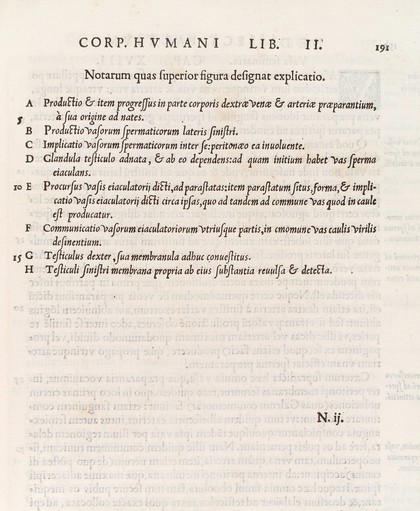 CORP. HVMANI LIB. II. 191
Notarum quas superior figura designat explicatio.
A Productio & item progressus in parte corporis dextræ venæ & arteriæ præparantium,
5 à sua origine ad nates.
B Productio vasorum spermaticorum lateris sinistri.
C Implicatio vasorum spermaticorum inter se: peritonæo ea inuoluente.
D Glandula testiculo adnata, & ab eo dependens: ad quam initium habet vas sperma
eiaculans.
10 E Procursus vasis eiaculatorij dicti, ad parastatas: item parastatum situs, forma, & impli-
catio vasis eiaculatorij dicti circa ipsas, quo ad tandem ad commune vas quod in caule
est producatur.
F Communicatio vasorum eiaculatoriorum vtriusque partis, in cmomune vas caulis virilis
desinentium.
15 G Testiculus dexter, sua membranula adhuc conuestitus.
H Testiculi sinistri membrana propria ab eius substantia reuulsa & detecta.
N. ij.